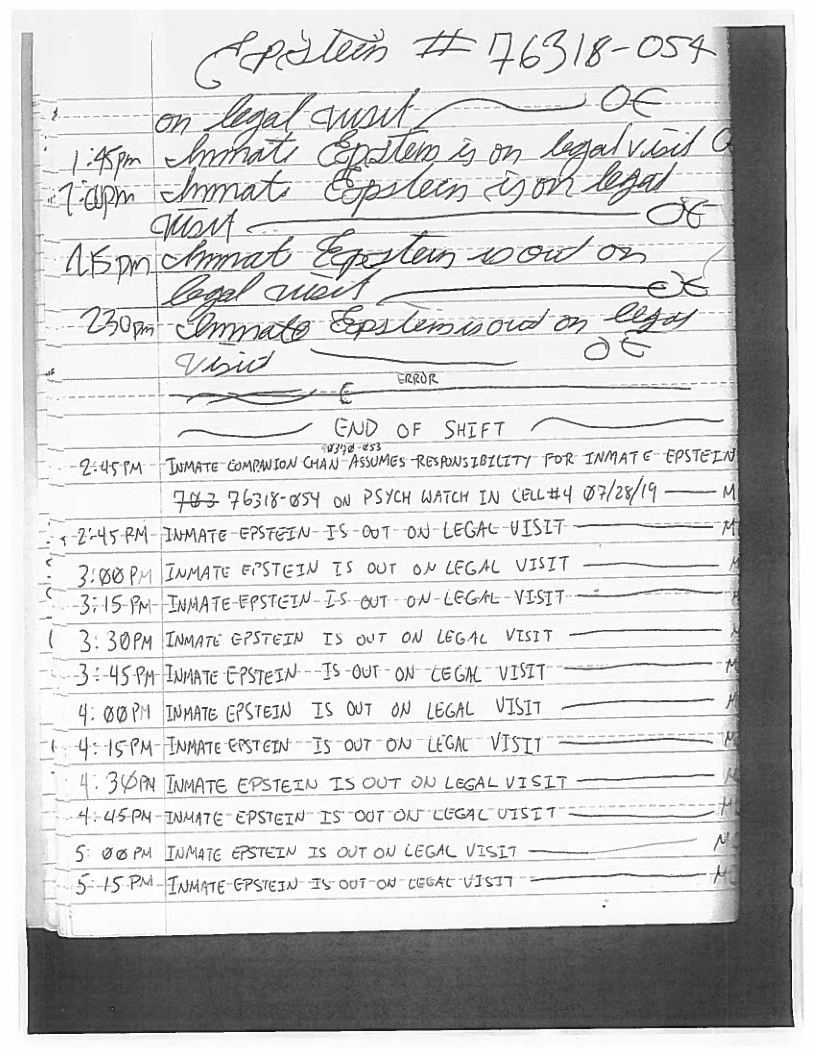 Epstein # 76318-054
on legal visit OE
1:45pm Inmate Epstein is on legal visit
2:00pm Inmate Epstein is on legal
visit OE
2:15pm Inmat Epstein is out on
legal visit OE
230pm Inmate Epstein is out on legal
visit OE
ERROR
E
END OF SHIFT
90390-053
2:45PM INMATE COMPANION CHAN ASSUMES RESPONSIBILITY FOR INMATE EPSTEIN
703 76318-054 ON PSYCH WATCH IN CELL#4 07/28/19 M
2:45 PM INMATE EPSTEIN IS OUT ON LEGAL VISIT M
3:00 PM INMATE EPSTEIN IS OUT ON LEGAL VISIT M
3:15 PM INMATE EPSTEIN IS OUT ON LEGAL VISIT M
3:30PM INMATE EPSTEIN IS OUT ON LEGAL VISIT M
3:45PM INMATE EPSTEIN IS OUT ON LEGAL VISIT M
4:00PM INMATE EPSTEIN IS OUT ON LEGAL VISIT M
4:15PM INMATE EPSTEIN IS OUT ON LEGAL VISIT M
4:30PM INMATE EPSTEIN IS OUT ON LEGAL VISIT M
4:45PM INMATE EPSTEIN IS OUT ON LEGAL VISIT M
5:00 PM INMATE EPSTEIN IS OUT ON LEGAL VISIT M
5:15 PM INMATE EPSTEIN IS OUT ON LEGAL VISIT M